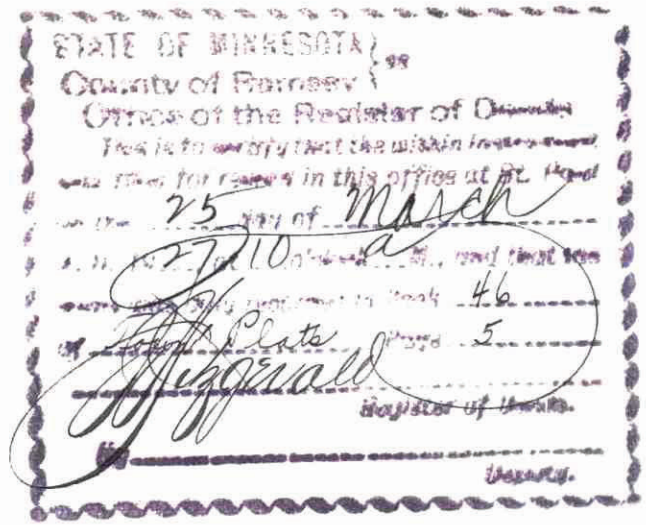 STATE OF MINNESOTA } ss
County of Ramsey
Office of the Register of Deeds
This is to certify that the within
for record in this office at St. Paul
on the 25 day of March
A. D. 1927, at 10 o'clock a M., and that the
same was duly recorded in Book 46
of Plats Page 5
Fitzgerald
Register of Deeds.
By
Deputy.